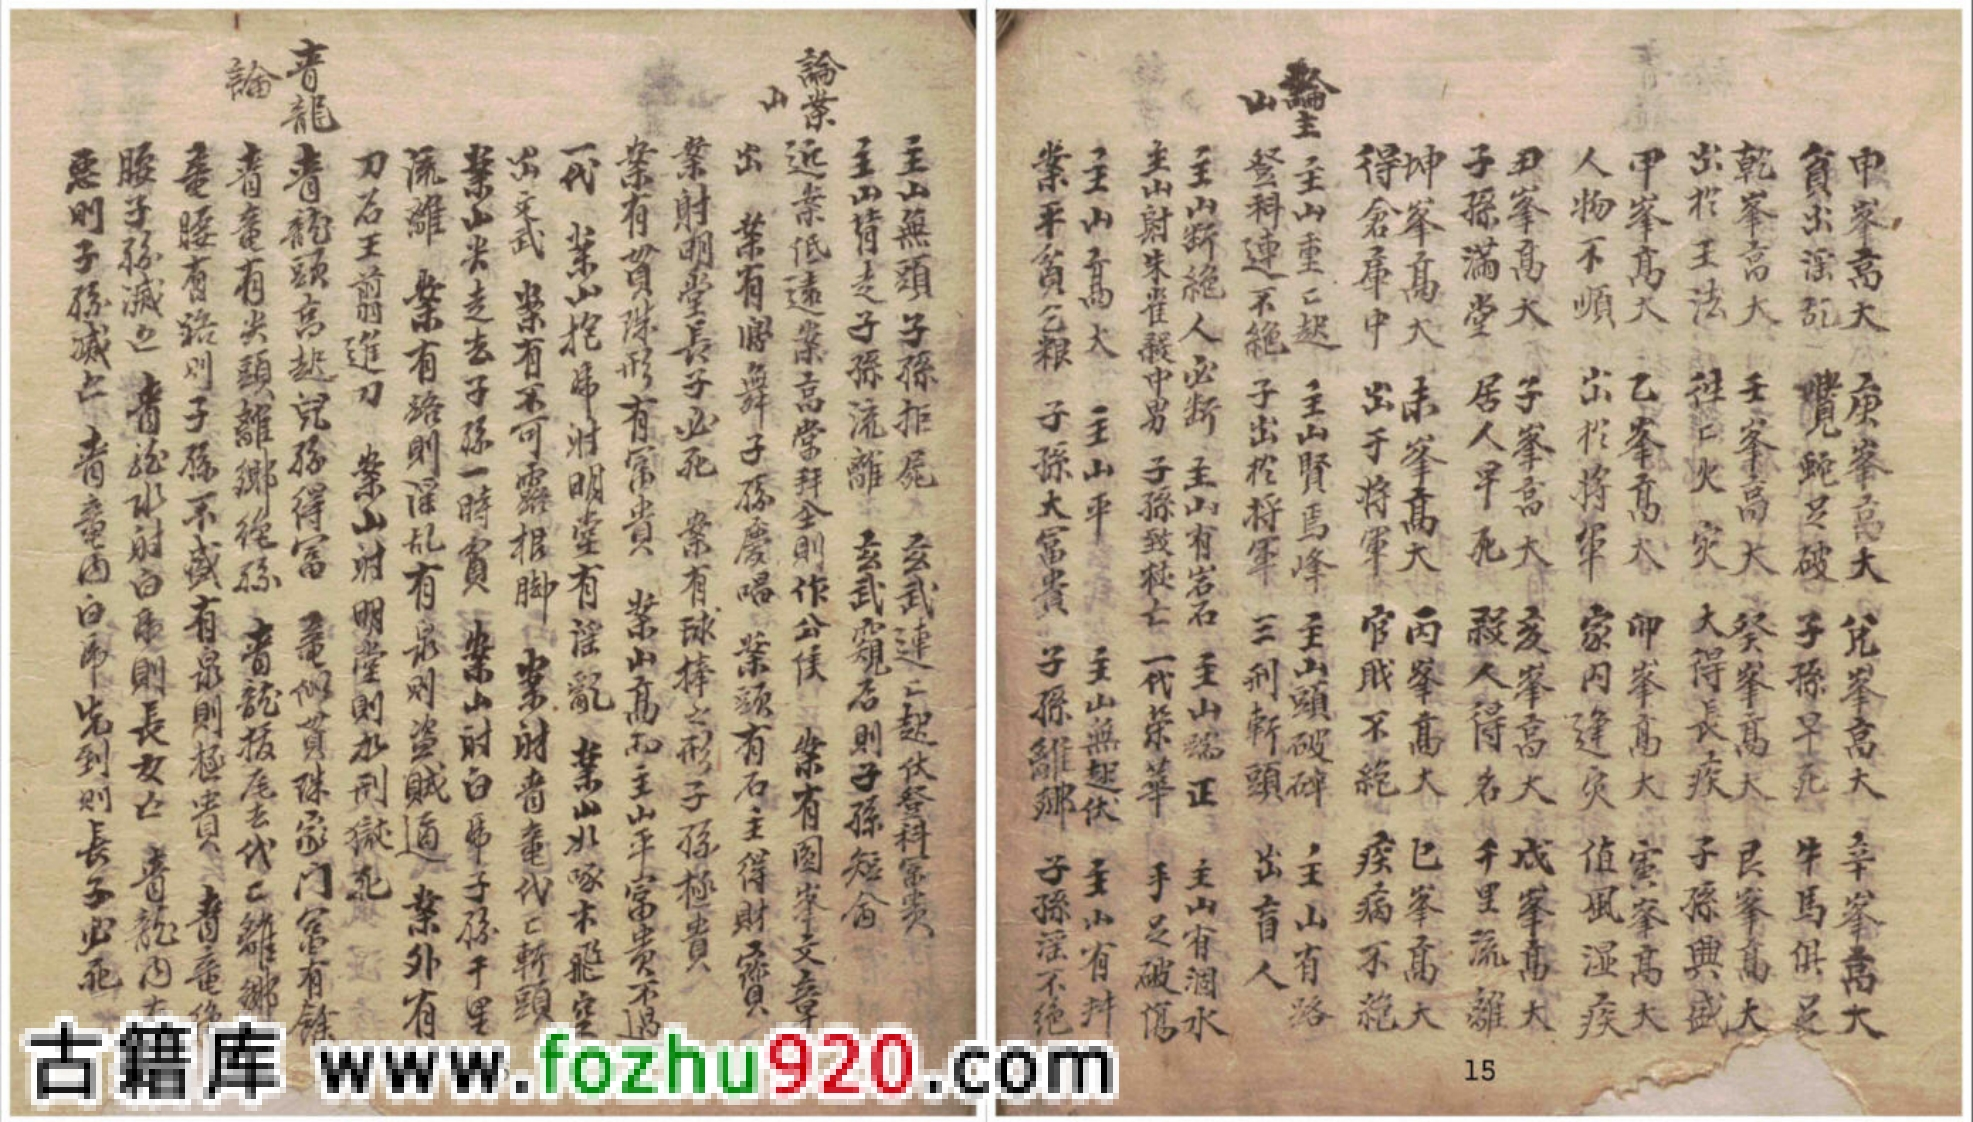 申峯高大 庚峯高大 兌峯高大 辛峯高大
貧出淫乱 蹩蛇足破 子孫早死 牛馬俱足
乾峯高大 壬峯高大 癸峯高大 艮峯高大
出於王法 往亡火灾 大得長疾 子孫興盛
甲峯高大 乙峯高大 卯峯高大 寅峯高大
人物不順 出於將軍 家內逢灾 值風湿疾
丑峯高大 子峯高大 亥峯高大 戌峯高大
子孫滿堂 居人早死 殺人得名 千里流離
坤峯高大 未峯高大 丙峯高大 巳峯高大
得倉庫中 出于將軍 官戝不絶 疾病不絶
論主山
主山重〻起 主山賢馬峰 主山頭破碎 主山有路
登科連不絶 子出於將軍 三刑斬頭 出盲人
主山断絶人必断 主山有岩石 主山端正 主山有澗水
主山射朱雀殺中男 子孫致杖亡 一代荣華 手足破傷
主山高大 主山平 主山無起伏 主山有
業平貧乞粮 子孫大冨貴 子孫離鄉 子孫淫不绝
主山無頭子孫拒屍 玄武連〻起伏登科冨貴
主山背走子孫流離 玄武窺后則子孫短命
論案山
近案低遠案高常拜全則作公侯 案有圓峯文章
出 案有舞子孫慶唱 案頭有石主得財寶
案射明堂長子必死 案有球捧之形子孫極貴
案有貫珠形有冨貴 案山高而主山平富贵不過
一代 案山抱帍射明堂有谣亂 案山如啄木飛空
出文武 案有不可露根脚 案射青竜代〻斬頭
案山尖走去子孫一時貧 案山射白帍子孫千里
流離 案有路則淫乱有泉則盗賊過 案外有
刀石王前進刀 案山射明堂則必刑獄死
青龍論
青龍頭高起兒孫得冨 竜似貫珠家门冨有餘
青竜有尖頭離鄉绝孫 青龍拔尾去代〻離鄉
竜腰有路則子孫不盛有泉則極貴 青竜绝
腰子孫滅亡 青龍水射白虎則長女亡 青龍內
惡則子孫滅亡 青竜內白帍先到則長子必死
15
古籍库 www.fozhu920.com